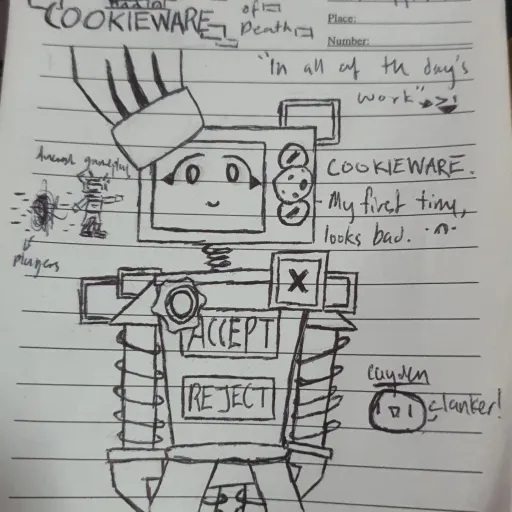 COOKIEWARE
of
Death
Place:
Number:
"In all of th day's
work"
COOKIEWARE.
My first time,
looks bad.
players
X
ACCEPT
REJECT
cayden
clanker!